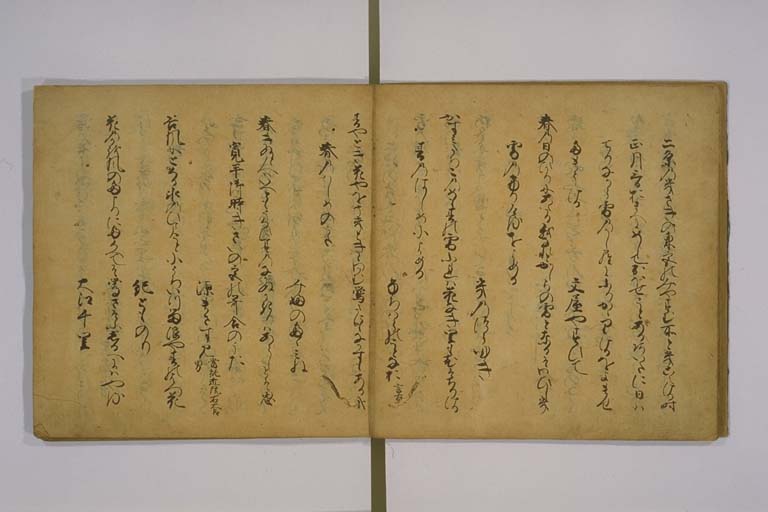 二条乃きさきの東宮のみやすむ所ときこえける時
正月三日おまへにめしておほせことあるあひたに日は
てりなから雪のかしらにふりかゝりけるをよませ
たまひける 文屋やすひて
春の日のひかりにあたる我なれとかしらの雪となるそわひしき
雪乃ふりけるをよめる
きのつらゆき
かすみたちこのめも春の雪ふれは花なき里も花そちりける
春乃はしめによめる
ふちはらのことなほ
春やとき花やをそきときゝわかむ鶯たにもなかすもあるかな
春乃はしめのうた
みふのたゝみね
春きぬと人はいへともうくひすのなかぬかきりはあらしとそ思
寛平御時きさいの宮の哥合のうた
源まさすみ
谷風にとくる氷のひまことにうちいつる浪や春のはつ花
紀とものり
花のかを風のたよりにたくへてそ鶯さそふしるへにはやる
大江千里